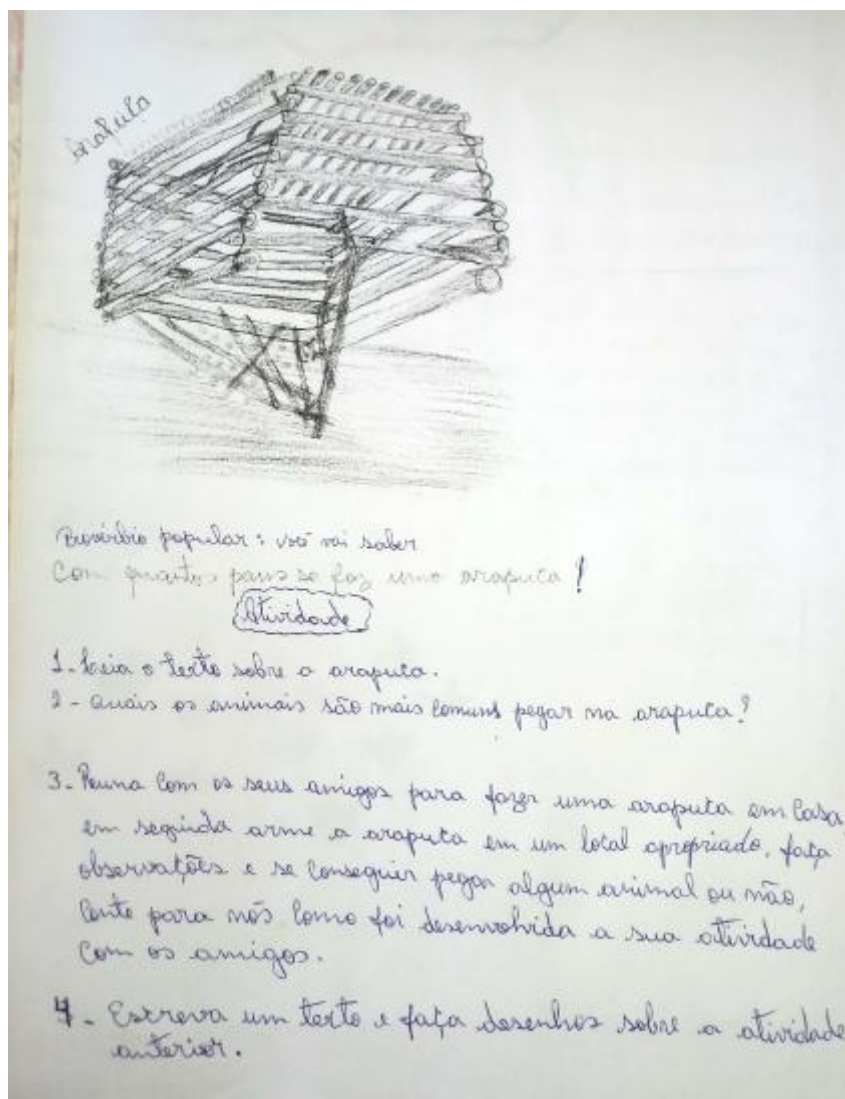 Arapuca
Provérbio popular: você vai saber
Com quantos paus se faz uma arapuca!
Atividade
1- Leia o texto sobre a arapuca.
2- Quais os animais são mais comuns pegar na arapuca?
3- Reuna com os seus amigos para fazer uma arapuca em casa,
em seguida arme a arapuca em um local apropriado, faça
observações e se conseguir pegar algum animal ou não,
conte para nós como foi desenvolvida a sua atividade
com os amigos.
4- Escreva um texto e faça desenhos sobre a atividade
anterior.